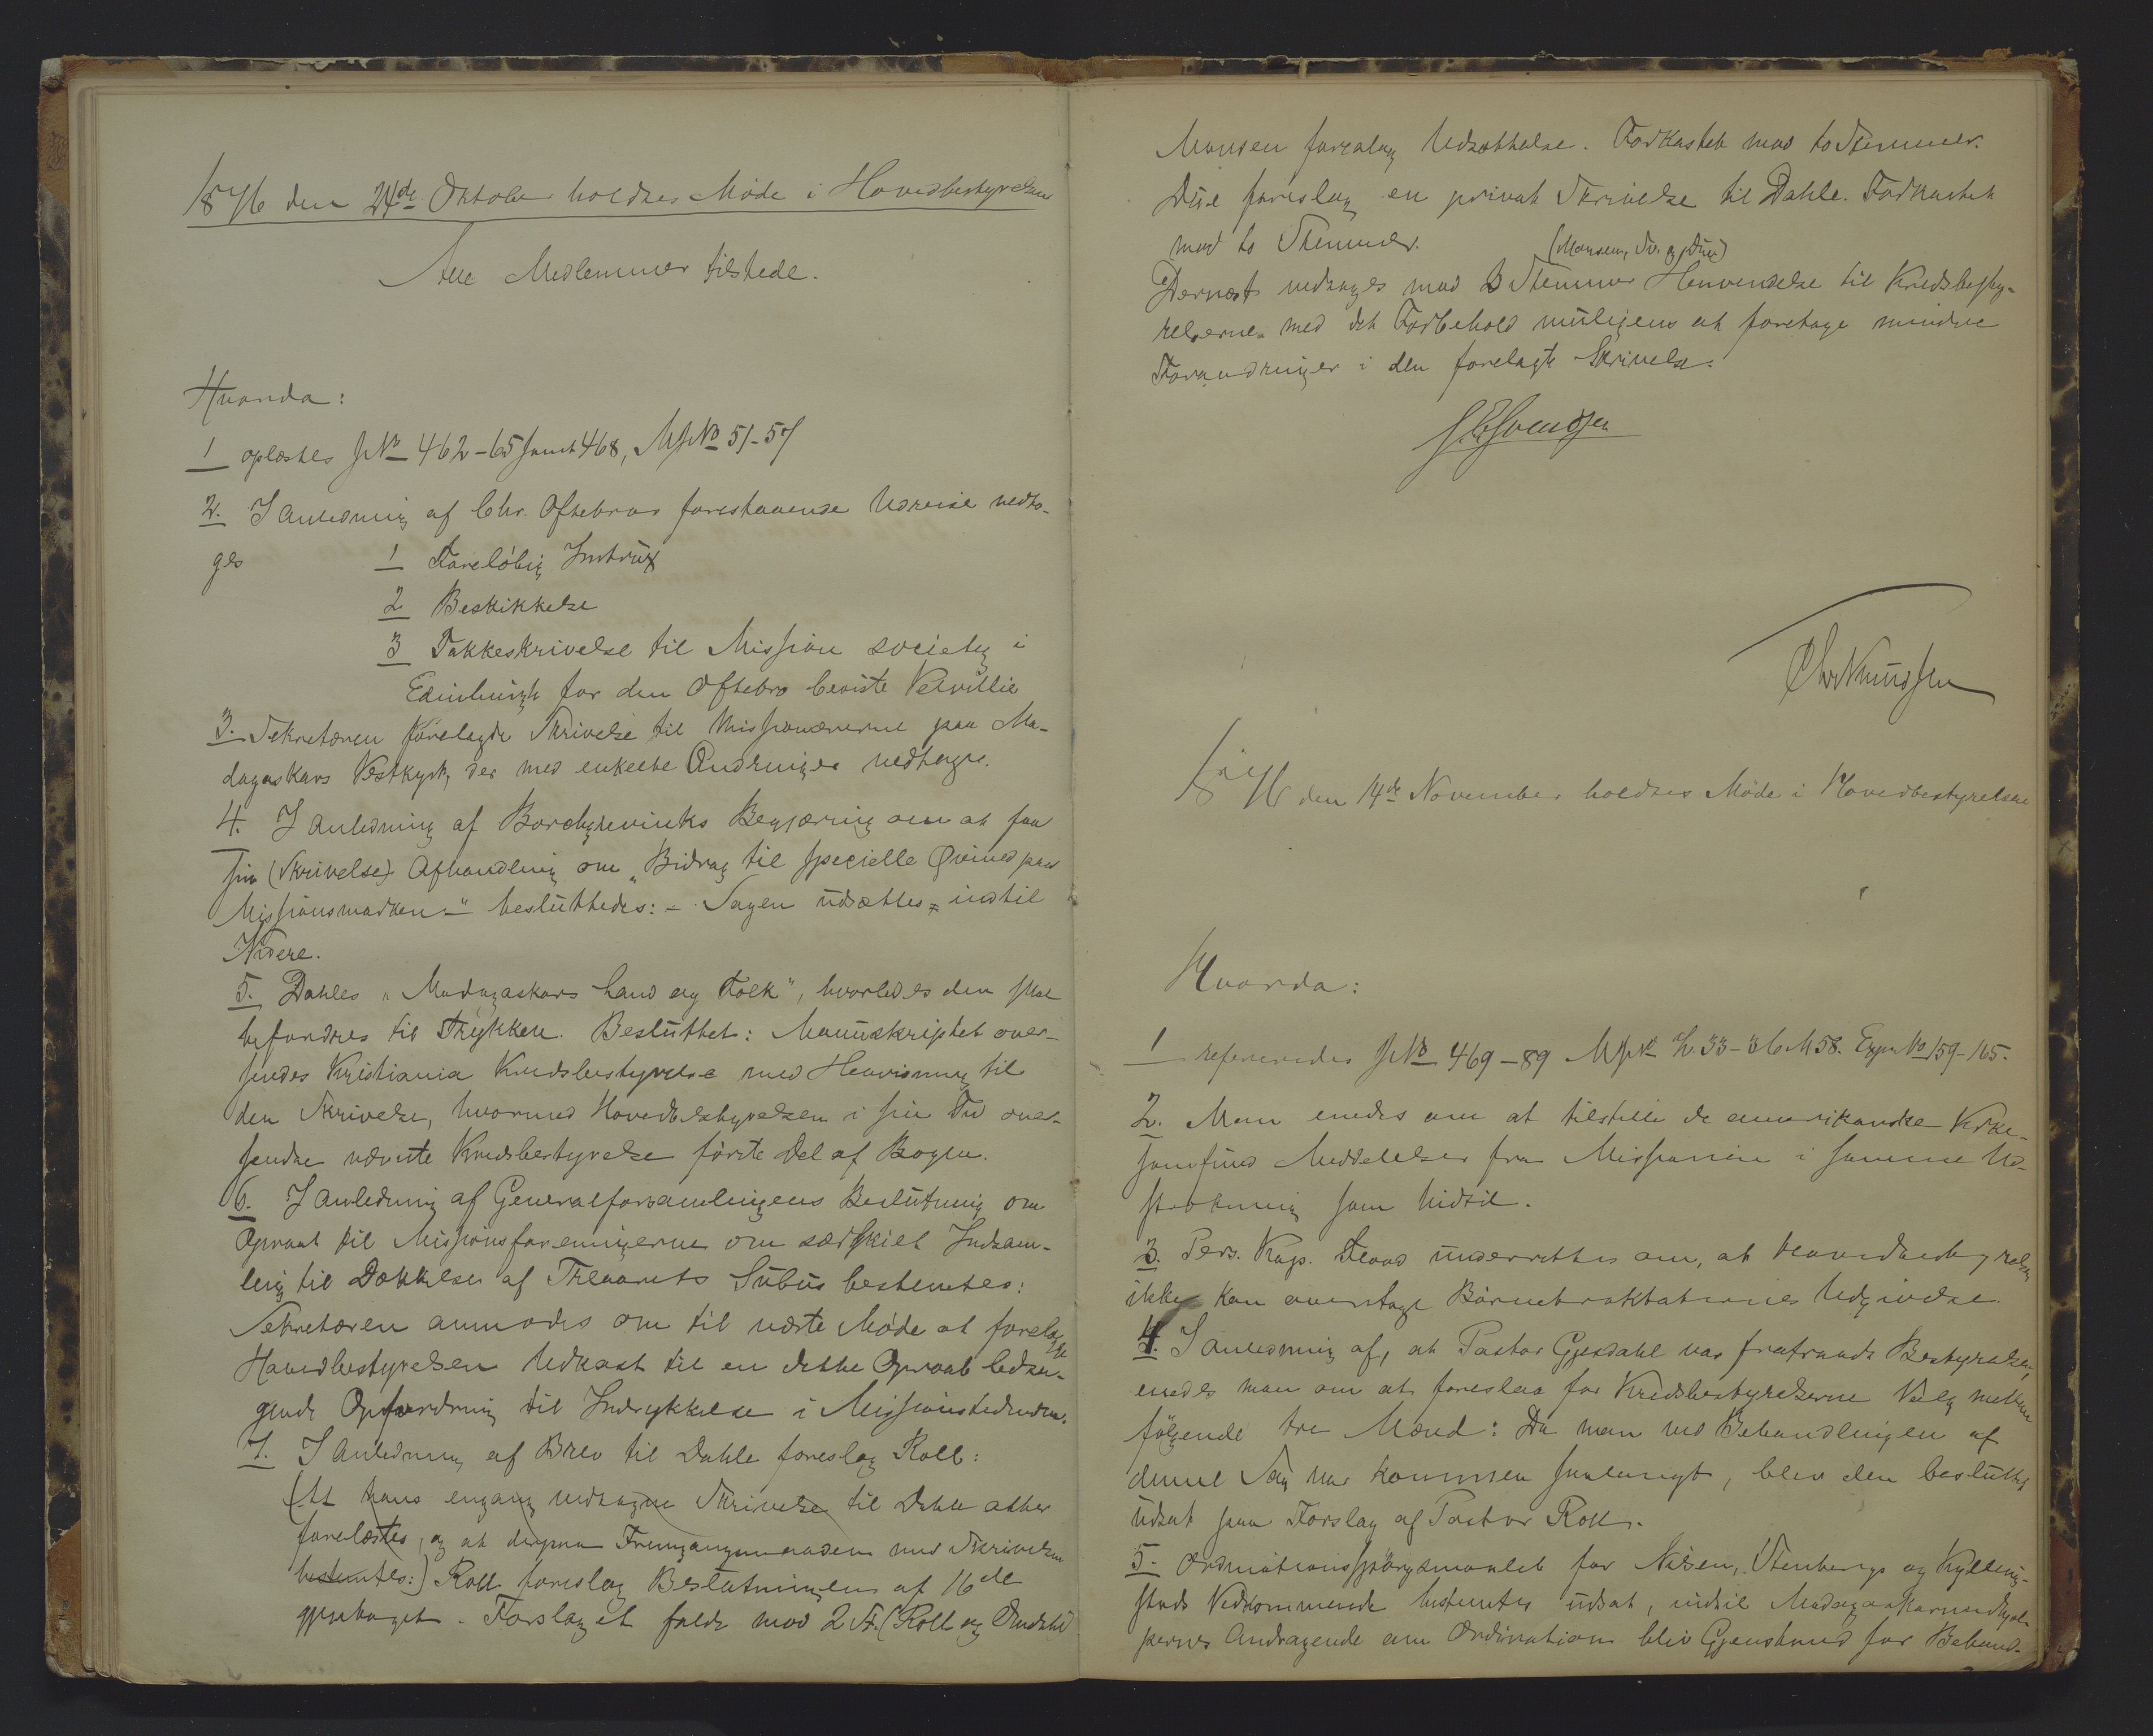 1876 den 24de Oktober holdtes Møde i Hovedbestyrelsen
Alle Medlemmer tilstede.
Hvorda:
1 oplæstes JN° 462-65 samt 468, MJN° 51-57
2. I Anledning af Chr. Oftebros forestaaende Udreise vedto-
ges 1 Foreløbig Instrux
2 Beskikkelse
3 Takkeskrivelse til Mission society i
Edinburgh for den Oftebro beviste Velvillie
3. Sekretæren forelagde Skrivelse til Missionærerne paa Ma-
dagaskars Vestkyst, der med enkelte Ændringer vedtoges.
4. I Anledning af Borchgrevinks Begjæring om at faa
sin (Skrivelse) Afhandling om „Bidrag til specielle Øiemed paa
Missionsmarken" besluttedes: - Sagen udsættes indtil
Videre.
5. Dahles „Madagaskars Land og Folk", hvorledes den skal
befordres til Trykken. Besluttet: Manuskriptet over-
sendes Kristiania Kredsbestyrelse med Henvisning til
den Skrivelse, hvormed Hovedbestyrelsen i sin Tid over-
sendte nævnte Kredsbestyrelse første Del af Bogen.
6. I Anledning af Generalforsamlingens Beslutning om
Opraab til Missionsforeningerne om særskilt Indsam-
ling til Dækkelse af Treaarets bestemtes:
Sekretæren anmodes om til næste Møde at forelægge
Hovedbestyrelsen Udkast til en dette Opraab ledsa-
gende Opfordring til Indrykkelse i Missionstidenden.
7. I Anledning af Brev til Dahle foreslog Roll:
(At hans engang vedtagne Skrivelse til Dahle atter
forelæstes, og at derpaa Fremgangsmaaden med Skrivelsen
bestemtes:) Roll foreslog Beslutningen af 16de
gjentaget. Forslaget faldt mod 2 St. (Roll og
Monsen foreslog Udsættelse. Forkastet mod to Stemmer.
Due foreslog en privat Skrivelse til Dahle. Forkastet
mod to Stemmer. (Monsen, Sv. og Due)
Dernæst vedtoges mod 3 Stemmer Henvendelse til Kredsbesty-
relserne med det Forbehold muligens at foretage mindre
Forandringer i den forelagte Skrivelse.
Svendsen
Chr Knudsen
1876 den 14de November holdtes Møde i Hovedbestyrelsen
Hvorda:
1 refereredes JN° 469-89 MJN° Z. 33-36 M 58. Exp. N° 159-165.
2. Man enedes om at tilstille de amerikanske Kirke-
samfund Meddelelser fra Missionen i samme Ud-
strækning som hidtil.
3. Pers. Kap. Flood underrettes om, at Hovedbestyrelsen
ikke kan overtage Børnetraktaternes Udgivelse.
4. I Anledning af, at Pastor Gjesdahl var fratraadt Bestyrelsen,
enedes man om at foreslaa for Kredsbestyrelserne Valg mellem
følgende tre Mænd: Da man ved Behandlingen af
denne Sag var kommen saalangt, blev den besluttet
udsat paa Forslag af Pastor Roll.
5. Ordinationsspørgsmaalet for Nilsen, Stenbergs og Kylling-
stads Vedkommende bestemtes udsat, indtil
pernes Andragende om Ordination blev Gjenstand for Behand-